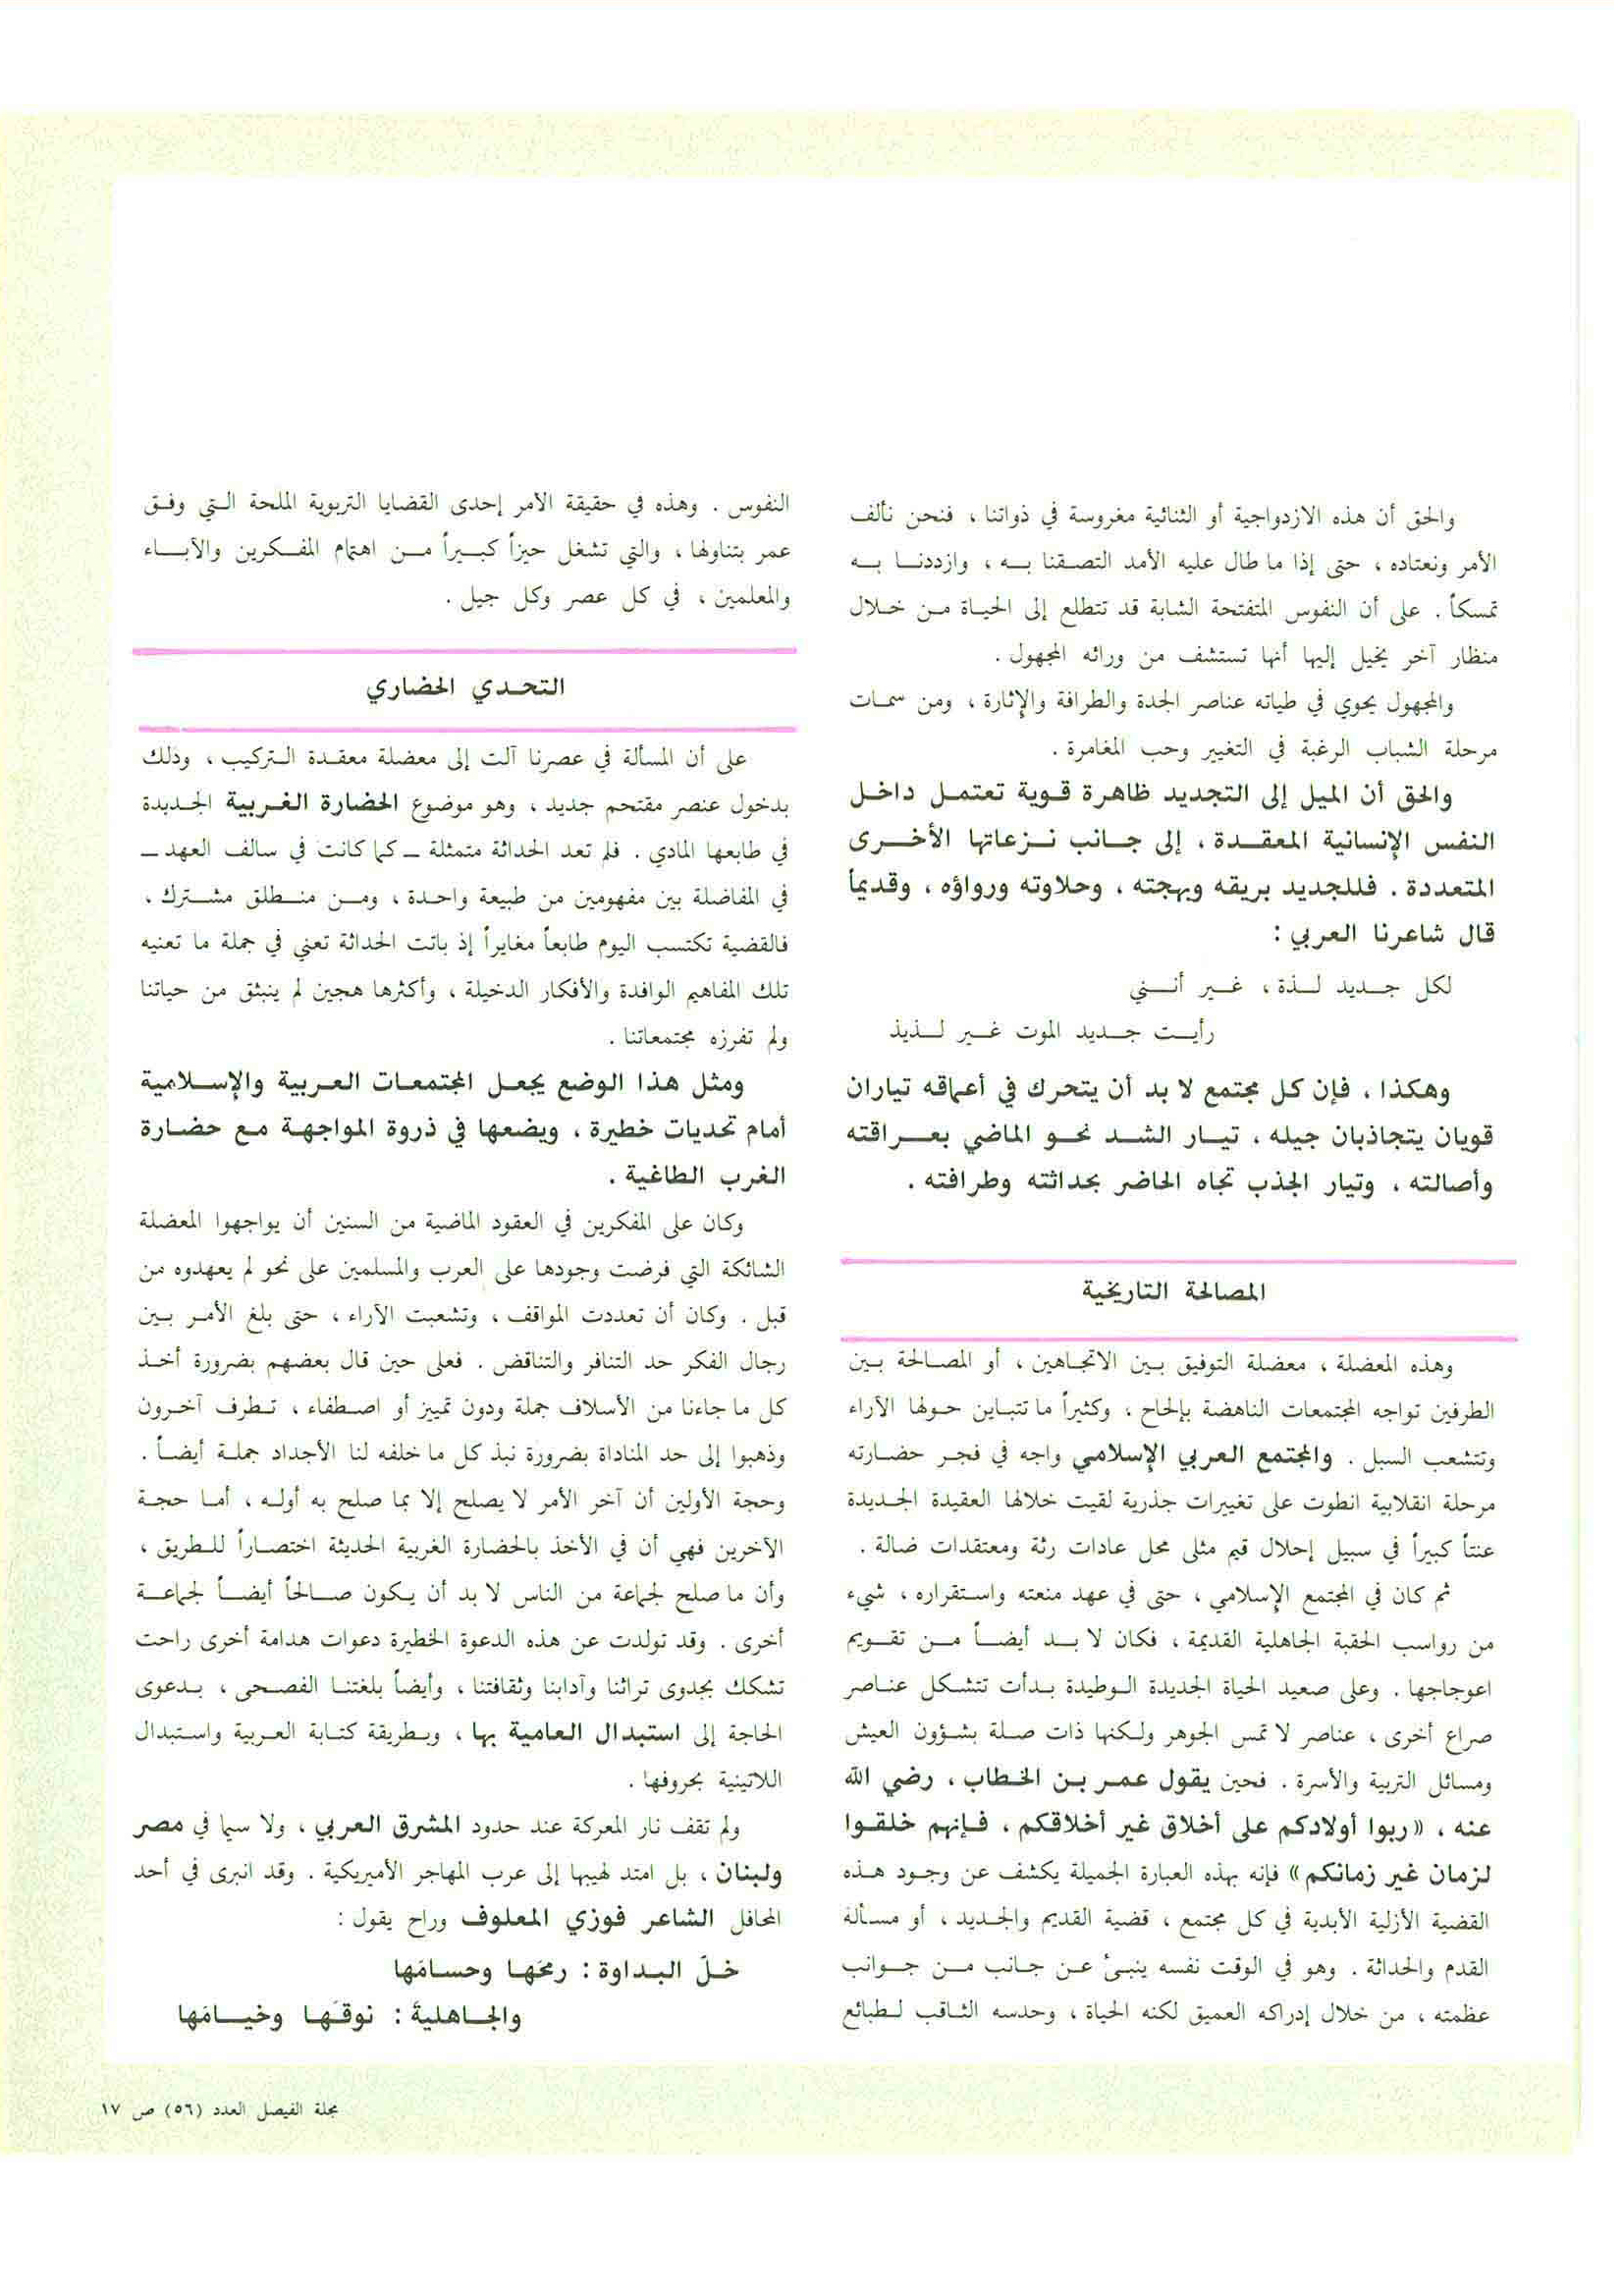 والحق أن هذه الازدواجية أو الثنائية مغروسة في ذواتنا ، فنحن نألف
الأمر ونعتاده ، حتى إذا ما طال عليه الأمد التصقنا به ، وازددنا به
تمسكاً . على أن النفوس المتفتحة الشابة قد تتطلع إلى الحياة من خلال
منظار آخر يخيل إليها أنها تستشف من ورائه المجهول .
والمجهول يحوي في طياته عناصر الجدة والطرافة والإثارة ، ومن سمات
مرحلة الشباب الرغبة في التغيير وحب المغامرة .
والحق أن الميل إلى التجديد ظاهرة قوية تعتمل داخل
النفس الإنسانية المعقدة ، إلى جانب نزعاتها الأخرى
المتعددة . فللجديد بريقه وبهجته ، وحلاوته ورواؤه ، وقديماً
قال شاعرنا العربي :
لكل جديد لذة ، غير أنني
رأيت جديد الموت غير لذيذ
وهكذا ، فإن كل مجتمع لا بد أن يتحرك في أعماقه تياران
قويان يتجاذبان جيله ، تيار الشد نحو الماضي بعراقته
وأصالته ، وتيار الجذب تجاه الحاضر بحداثته وطرافته .
المصالحة التاريخية
وهذه المعضلة ، معضلة التوفيق بين الاتجاهين ، أو المصالحة بين
الطرفين تواجه المجتمعات الناهضة بإلحاح ، وكثيراً ما تتباين حولها الآراء
وتتشعب السبل . والمجتمع العربي الإسلامي واجه في فجر حضارته
مرحلة انقلابية انطوت على تغييرات جذرية لقيت خلالها العقيدة الجديدة
عنتاً كبيراً في سبيل إحلال قيم مثلى محل عادات رثة ومعتقدات ضالة .
ثم كان في المجتمع الإسلامي ، حتى في عهد منعته واستقراره ، شيء
من رواسب الحقبة الجاهلية القديمة ، فكان لا بد أيضاً من تقويم
اعوجاجها . وعلى صعيد الحياة الجديدة الوطيدة بدأت تتشكل عناصر
صراع أخرى ، عناصر لا تمس الجوهر ولكنها ذات صلة بشؤون العيش
ومسائل التربية والأسرة . فحين يقول عمر بن الخطاب ، رضي الله
عنه ، «ربوا أولادكم على أخلاق غير أخلاقكم ، فإنهم خلقوا
لزمان غير زمانكم» فإنه بهذه العبارة الجميلة يكشف عن وجود هذه
القضية الأزلية الأبدية في كل مجتمع ، قضية القديم والجديد ، أو مسألة
القدم والحداثة . وهو في الوقت نفسه ينبئ عن جانب من جوانب
عظمته ، من خلال إدراكه العميق لكنه الحياة ، وحدسه الثاقب لطبائع
النفوس . وهذه في حقيقة الأمر إحدى القضايا التربوية الملحة التي وفق
عمر بتناولها ، والتي تشغل حيزاً كبيراً من اهتمام المفكرين والآباء
والمعلمين ، في كل عصر وكل جيل .
التحدي الحضاري
على أن المسألة في عصرنا آلت إلى معضلة معقدة التركيب ، وذلك
بدخول عنصر مقتحم جديد ، وهو موضوع الحضارة الغربية الجديدة
في طابعها المادي . فلم تعد الحداثة متمثلة ـ كما كانت في سالف العهد ـ
في المفاضلة بين مفهومين من طبيعة واحدة ، ومن منطلق مشترك ،
فالقضية تكتسب اليوم طابعاً مغايراً إذ باتت الحداثة تعني في جملة ما تعنيه
تلك المفاهيم الوافدة والأفكار الدخيلة ، وأكثرها هجين لم ينبثق من حياتنا
ولم تفرزه مجتمعاتنا .
ومثل هذا الوضع يجعل المجتمعات العربية والإسلامية
أمام تحديات خطيرة ، ويضعها في ذروة المواجهة مع حضارة
الغرب الطاغية .
وكان على المفكرين في العقود الماضية من السنين أن يواجهوا المعضلة
الشائكة التي فرضت وجودها على العرب والمسلمين على نحو لم يعهدوه من
قبل . وكان أن تعددت المواقف ، وتشعبت الآراء ، حتى بلغ الأمر بين
رجال الفكر حد التنافر والتناقض . فعلى حين قال بعضهم بضرورة أخذ
كل ما جاءنا من الأسلاف جملة ودون تمييز أو اصطفاء ، تطرف آخرون
وذهبوا إلى حد المناداة بضرورة نبذ كل ما خلفه لنا الأجداد جملة أيضاً .
وحجة الأولين أن آخر الأمر لا يصلح إلا بما صلح به أوله ، أما حجة
الآخرين فهي أن في الأخذ بالحضارة الغربية الحديثة اختصاراً للطريق ،
وأن ما صلح لجماعة من الناس لا بد أن يكون صالحاً أيضاً لجماعة
أخرى . وقد تولدت عن هذه الدعوة الخطيرة دعوات هدامة أخرى راحت
تشكك بجدوى تراثنا وآدابنا وثقافتنا ، وأيضاً بلغتنا الفصحى ، بدعوى
الحاجة إلى استبدال العامية بها ، وبطريقة كتابة العربية واستبدال
اللاتينية بحروفها .
ولم تقف نار المعركة عند حدود المشرق العربي ، ولا سيما في مصر
ولبنان ، بل امتد لهيبها إلى عرب المهاجر الأميريكية . وقد انبرى في أحد
المحافل الشاعر فوزي المعلوف وراح يقول :
خلّ البداوة : رمحَها وحسامَها
والجاهليةَ : نوقَها وخيامَها
مجلة الفيصل العدد (٥٦) ص ١٧